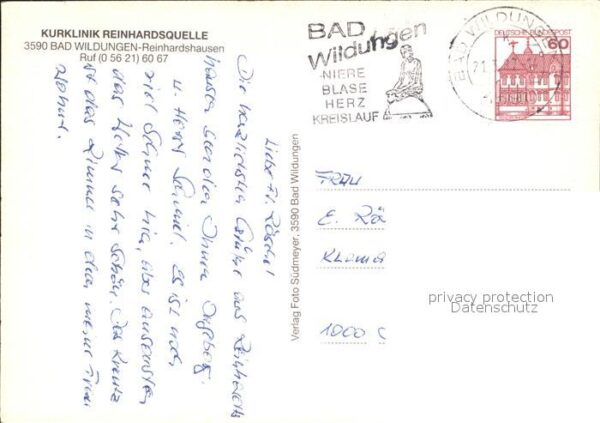 KURKLINIK REINHARDSQUELLE
3590 BAD WILDUNGEN-Reinhardshausen
Ruf (0 56 21) 60 67
BAD
Wildungen
NIERE
BLASE
HERZ
KREISLAUF
BAD WILDUNGEN
DEUTSCHE BUNDESPOST
60
Liebe Fr.
Die herzlichsten Grüße aus
hausen senden Ihnen
u. Herr Es ist noch
viel Schnee hier, aber ansonsten
das Wetter sehr schön. Das Kreuz
ist das Zimmer in dem meine Frau
wohnt.
Verlag Foto Südmeyer, 3590 Bad Wildungen
FRAU
E. Rö
KLAMA
1000
privacy protection
Datenschutz